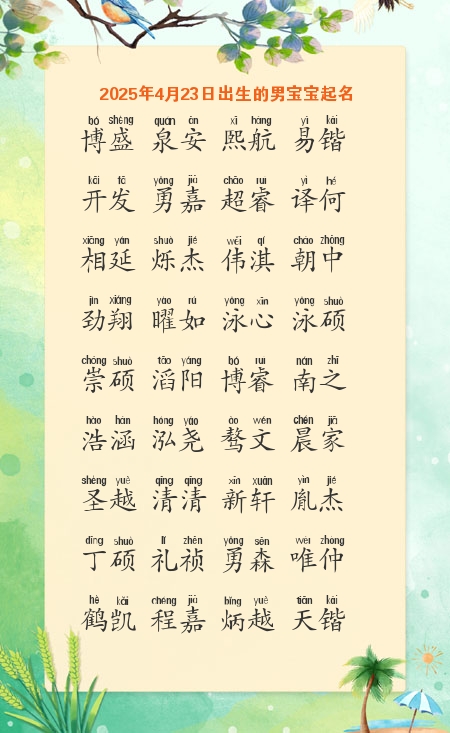 2025年4月23日出生的男宝宝起名
bó shèng quán ān xī háng yì kǎi
博盛 泉安 熙航 易锴
kāi fā yǒng jiā chāo ruì yì hé
开发 勇嘉 超睿 译何
xiāng yán shuò jié wěi qí cháo zhōng
相延 烁杰 伟淇 朝中
jìn xiáng yào rú yǒng xīn yǒng shuò
劲翔 曜如 泳心 泳硕
chóng shuò tāo yáng bó ruì nán zhī
崇硕 滔阳 博睿 南之
hào hán hóng yáo áo wén chén jiā
浩涵 泓尧 骜文 晨家
shèng yuè qīng qīng xīn xuān yìn jié
圣越 清清 新轩 胤杰
dīng shuò lǐ zhēn yǒng sēn wéi zhòng
丁硕 礼祯 勇森 唯仲
hè kǎi chéng jiā bǐng yuè tiān kǎi
鹤凯 程嘉 炳越 天锴